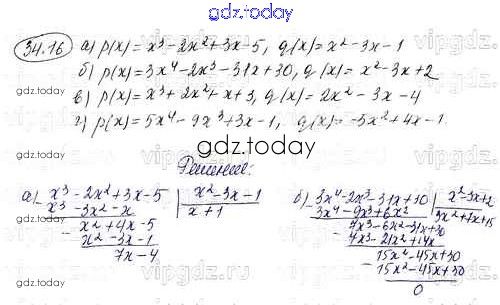 gdz.today
34.16 а) p(x) = x³ - 2x² + 3x - 5, q(x) = x² - 3x - 1
б) p(x) = 3x⁴ - 2x³ - 31x + 30, q(x) = x² - 3x + 2
в) p(x) = x³ + 2x² + x + 3, q(x) = 2x² - 3x - 4
г) p(x) = 5x⁴ - 9x³ + 3x - 1, q(x) = -5x² + 4x - 1
gdz.today
Решение:
а) x³ - 2x² + 3x - 5 | x² - 3x - 1
x³ - 3x² - x | x + 1
- x² + 4x - 5
x² - 3x - 1
7x - 4
б) 3x⁴ - 2x³ - 31x + 30 | x² - 3x + 2
3x⁴ - 9x³ + 6x² | 3x² + 7x + 15
- 7x³ - 6x² - 31x + 30
7x3 - 21x² + 14x
- 15x² - 45x + 30
15x² - 45x + 30
0
gdz.today